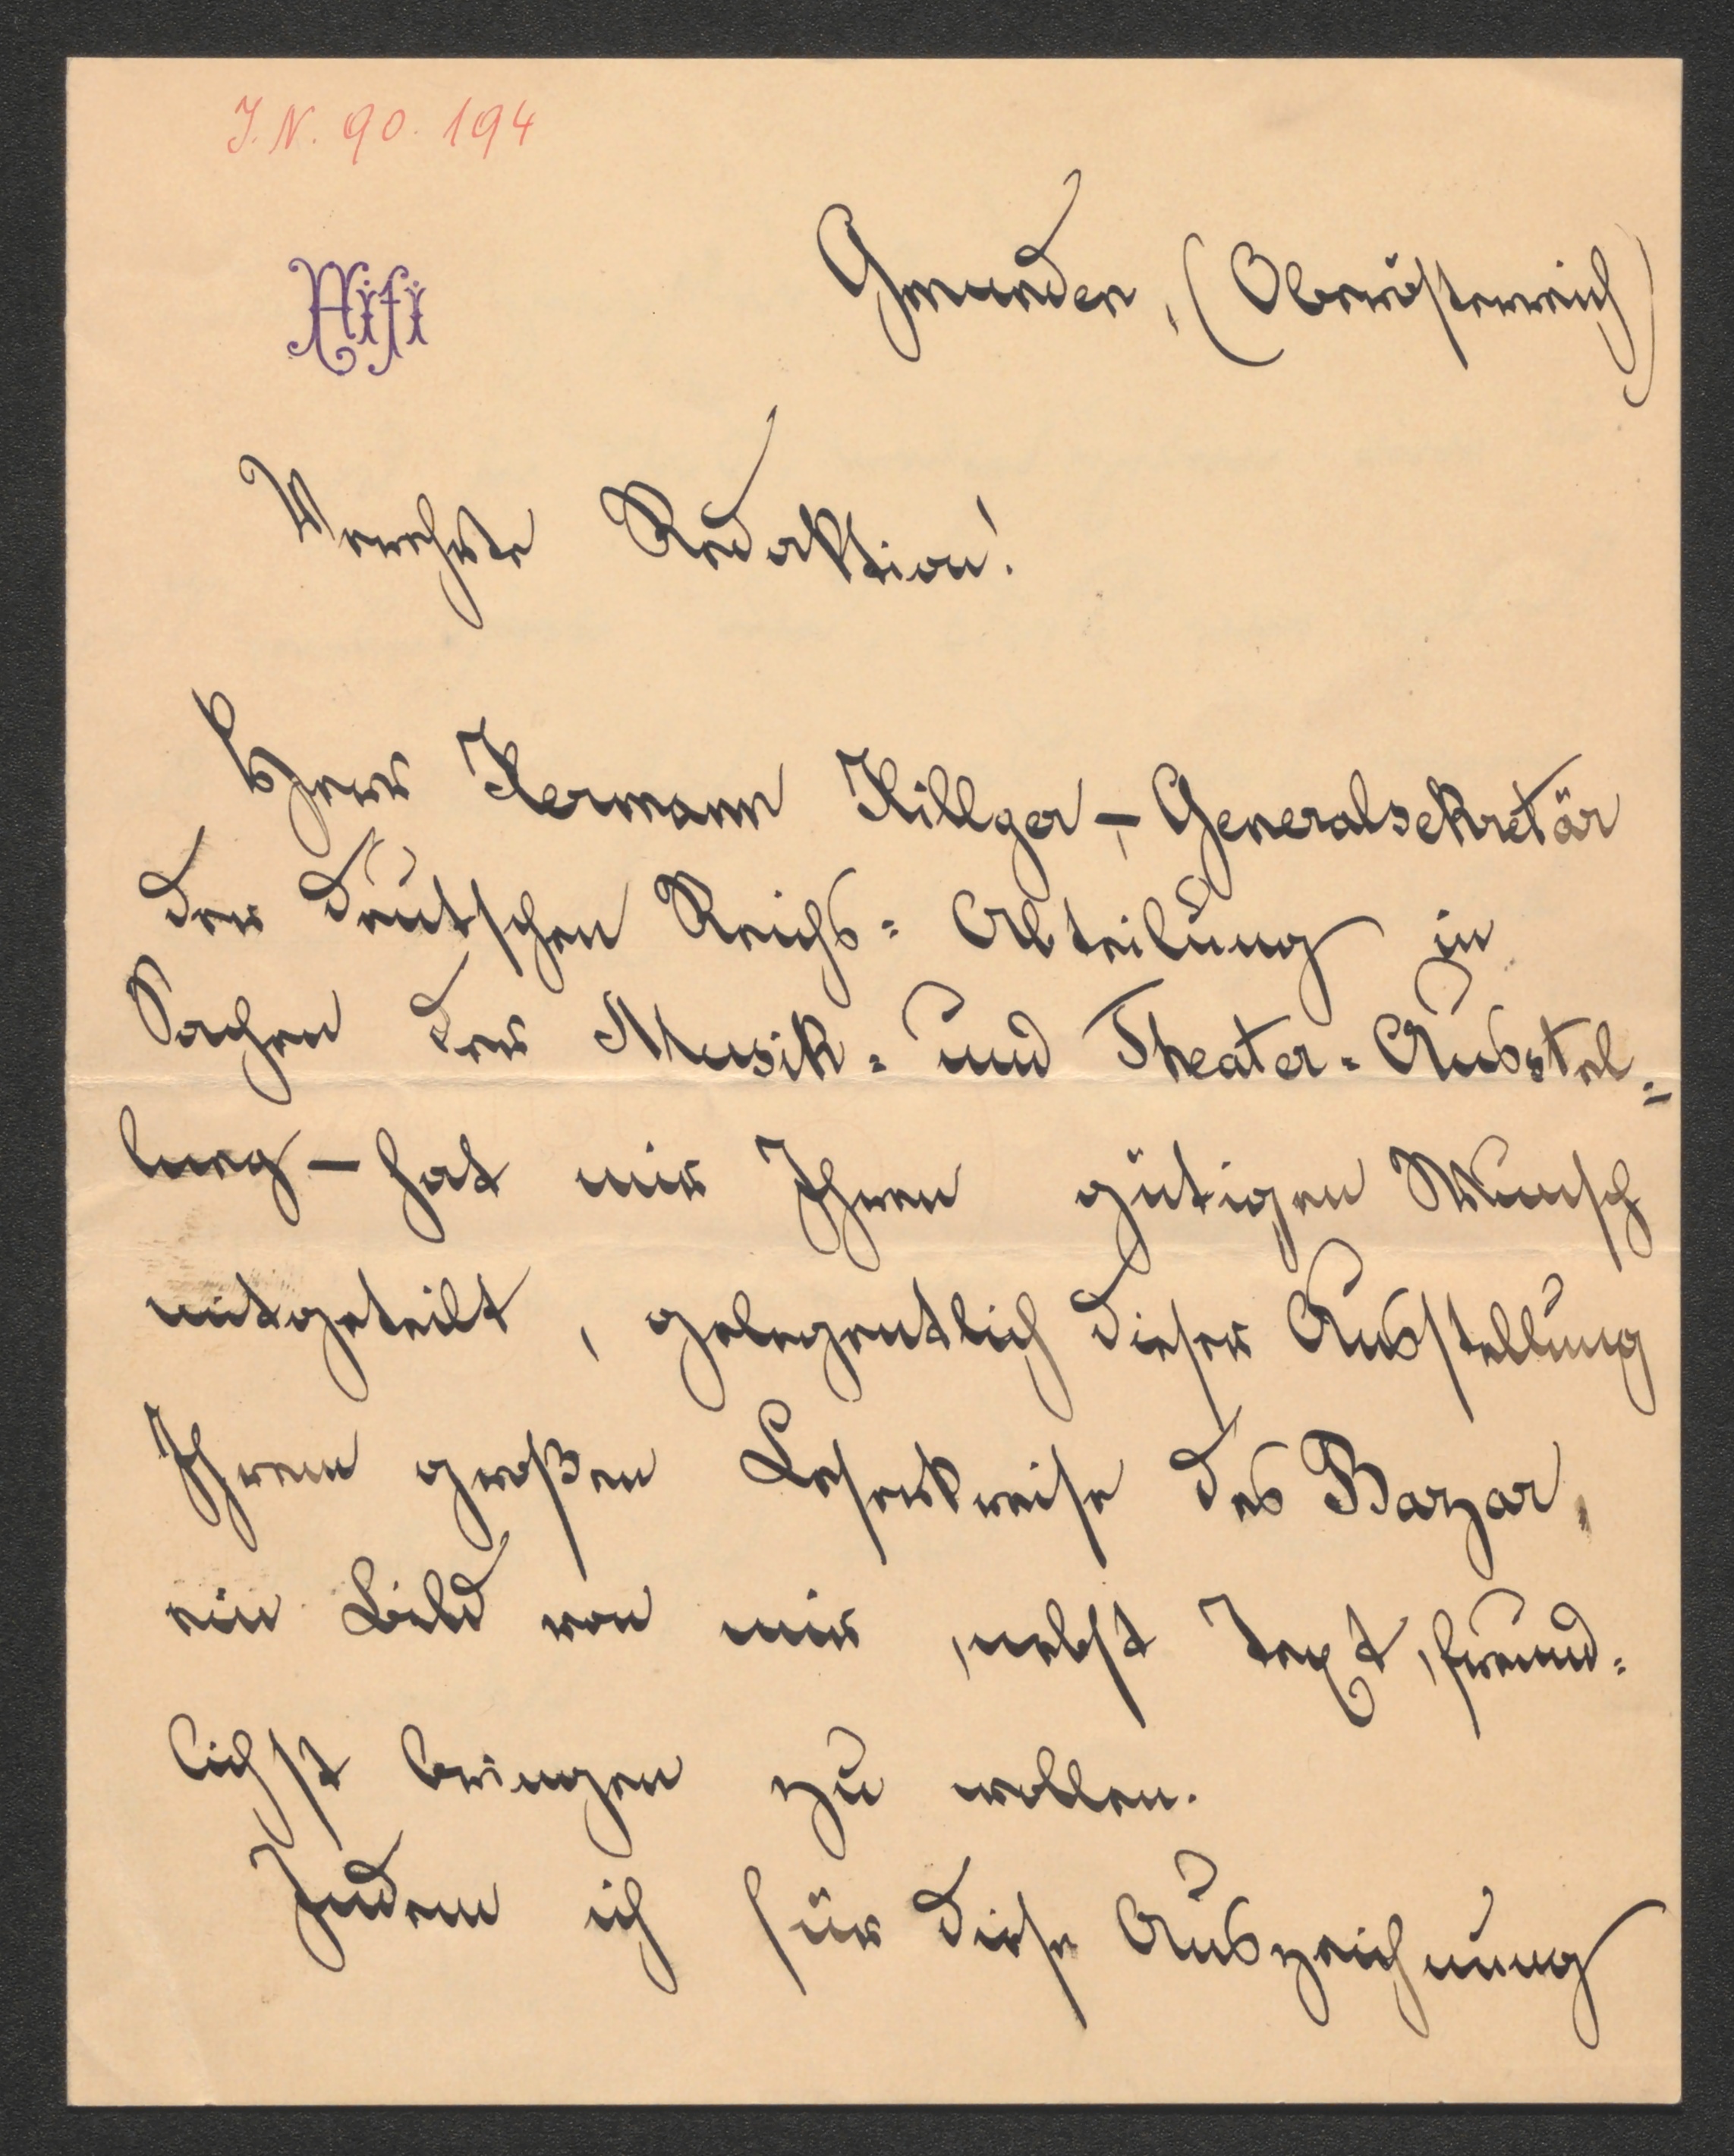 J. N. 90.194
Fifi
Gmunden, (Oberösterreich)
Verehrte Redaktion!
Herr Hermann Hillger – Generalsekretär
der deutschen Reichs= Abteilung in
Sachen der Musik= und Theater=Ausstel=
lung – hat mir Ihren gütigen Wunsch
mitgeteilt, gelegentlich dieser Ausstellung
Ihrem großen Leserkreise des Bazar,
ein Bild von mir, nebst Text, freund=
lichst bringen zu wollen.
Indem ich für diese Auszeichnung